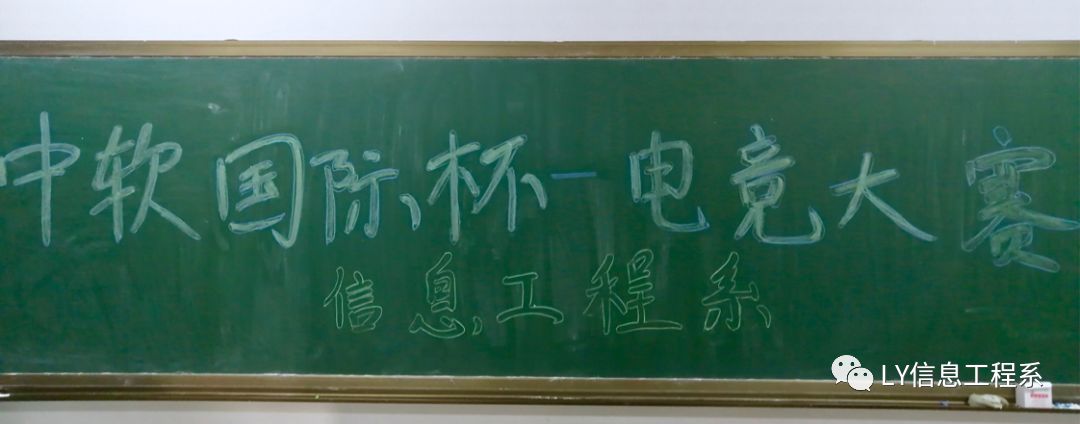 中软国际杯一电竞大赛
信息工程系
LY信息工程系